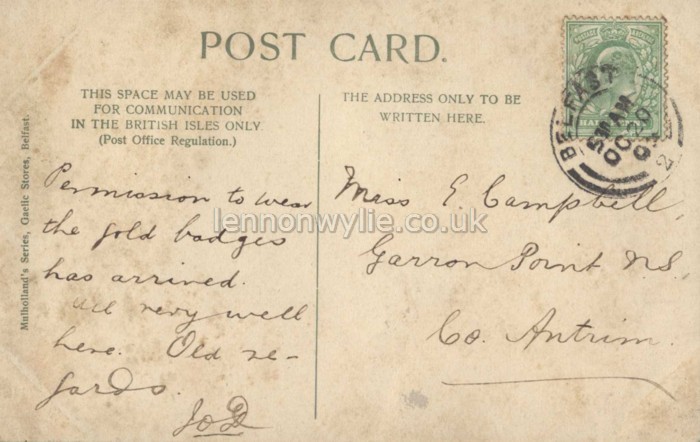 POST CARD.
THIS SPACE MAY BE USED
FOR COMMUNICATION
IN THE BRITISH ISLES ONLY.
(Post Office Regulation.)
THE ADDRESS ONLY TO BE
WRITTEN HERE.
BELFAST
OC 20
Mulholland's Series, Gaelic Stores, Belfast.
Permission to wear
the gold badges
has arrived.
All very well
here. Old re-
gards.
Miss E. Campbell,
Garron Point N.S.,
Co. Antrim.
lennonwylie.co.uk